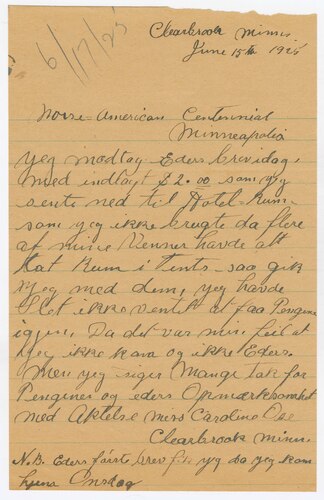 6/17/25
Clearbrook Minn.
June 15th 1925
Norse-American Centennial
Minneapolis
Yeg modtog Eders brev idag,
med indlagt $2.00 som yeg
sente ned til Hotel-Rum
som yeg ikke brugte da flere
af mine Venner havde alt
tat Rum i Tents- saa gik
yeg med dem, yeg havde
slet ikke ventet at faa Pengene
igjen, Da det var min feil at
yeg ikke kom og ikke Eders.
Men yeg siger Mange tak for
Pengene og eders Opmærksomhet
med Aktelse Miss Caroline
Clearbrook Minn.
N.B. Eders første brev fik yeg da yeg kom
hjem Onsdag